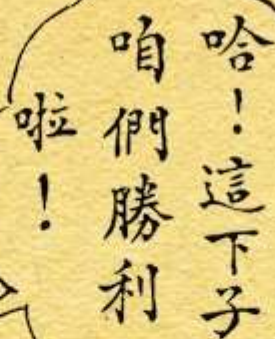 哈！這下子
咱們勝利
啦！